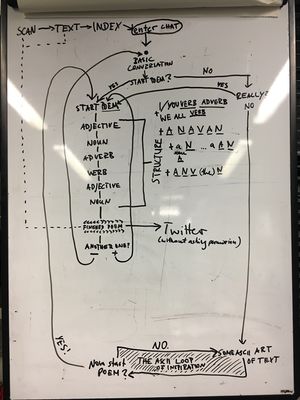 SCAN → TEXT → INDEX → enter CHAT
BASIC
CONVERSATION
START POEM?
NO
YES
YES
REALLY?
NO
START POEM
ADJECTIVE
NOUN
ADVERB
VERB
ADJECTIVE
NOUN
STRUCTURE
+ YOU VERB ADVERB
WE ALL VERB
+ A N A V A N ...
+ a N ... a A N
A
+ A N V (the) N
FINISHED POEM
→ Twitter
(without asking permission)
ANOTHER ONE?
- +
YES!
NO
THE ASCII LOOP
OF INSPIRATION
SOME ASCII ART
OF TEXT
Now start
POEM?